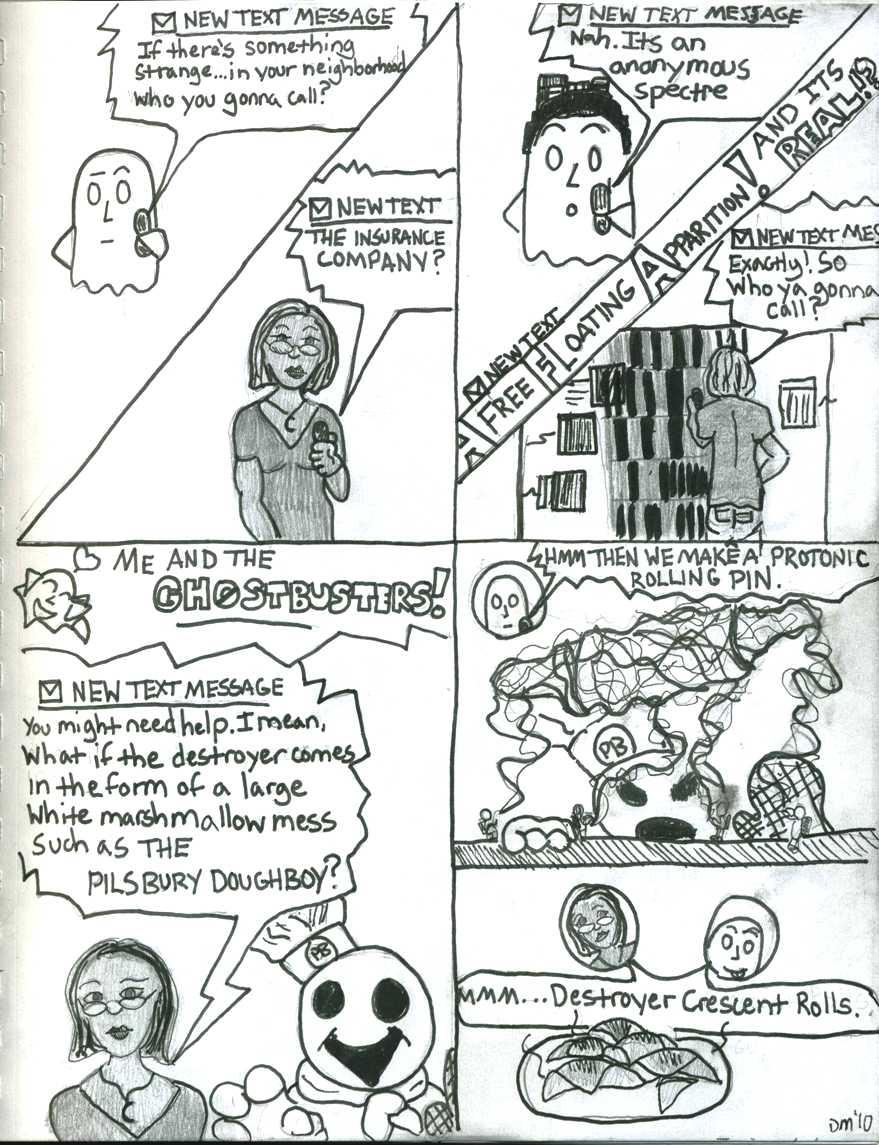 NEW TEXT MESSAGE
If there's something
strange...in your neighborhood
who you gonna call?
NEW TEXT
THE INSURANCE
COMPANY?
NEW TEXT MESSAGE
Nah. Its an
anonymous
spectre
NEW TEXT
A FREE FLOATING APPARITION! AND ITS
REAL!?
NEW TEXT MES
Exactly! So
Who ya gonna
call?
ME AND THE
GHOSTBUSTERS!
NEW TEXT MESSAGE
You might need help. I mean,
What if the destroyer comes
in the form of a large
white marshmallow mess
such as THE
PILSBURY DOUGHBOY?
PB
HMM THEN WE MAKE A PROTONIC
ROLLING PIN.
PB
MMM...Destroyer Crescent Rolls.
DM'10